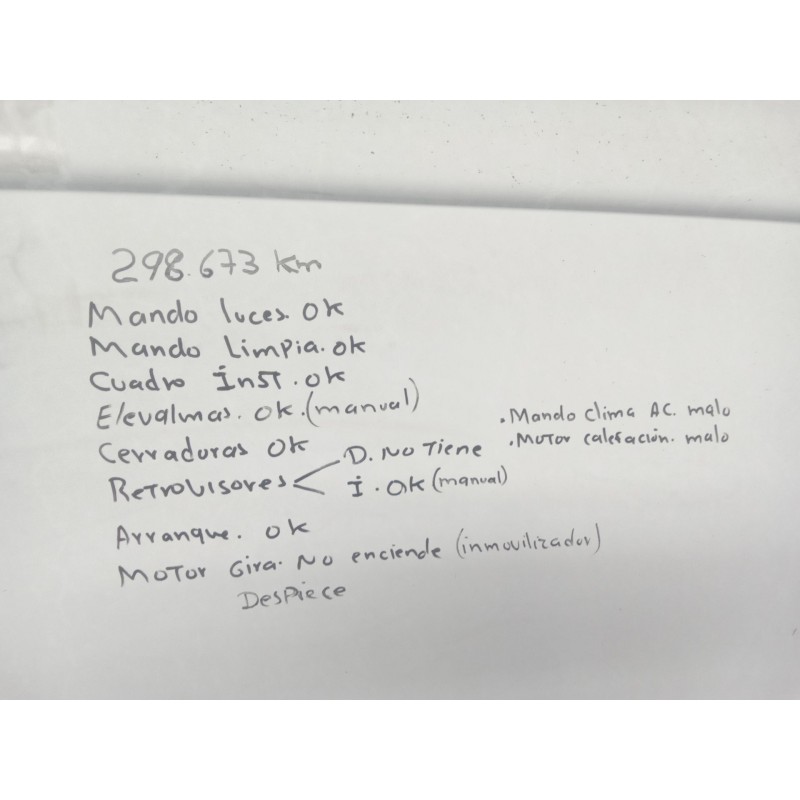 298.673 km
Mando luces. ok
Mando Limpia. ok
Cuadro Inst. ok
Elevalmas. ok. (manual)
Cerraduras ok
Retrovisores D. No Tiene
I. ok (manual)
. Mando clima AC. malo
. Motor calefación. malo
Arranque. ok
Motor Gira. No enciende (inmovilizador)
Despiece